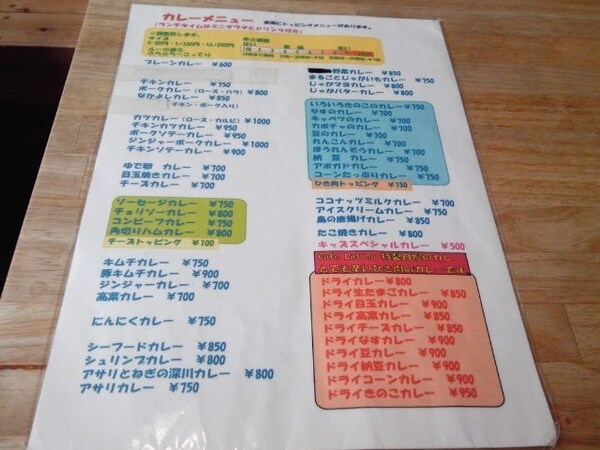 カレーメニュー
裏面にトッピングメニューがあります。
(ランチタイムはミニサラダとドリンク付き)
プレーンカレー ￥600
チキンカレー ￥750
ポークカレー (ロース・バラ) ￥800
なかよしカレー ￥850
(チキン・ポーク入り)
カツカレー (ロース・カルビ) ￥1000
チキンカツカレー ￥950
ポークソテーカレー ￥950
ジンジャーポークカレー ￥1000
チキンソテーカレー ￥900
ゆで卵 カレー ￥700
目玉焼きカレー ￥700
チーズカレー ￥700
ソーセージカレー ￥750
チョリソーカレー ￥800
コンビーフカレー ￥750
角切りハムカレー ￥800
チーズトッピング ￥100
キムチカレー ￥750
豚キムチカレー ￥900
ジンジャーカレー ￥700
高菜カレー ￥700
にんにくカレー ￥750
シーフードカレー ￥850
シュリンプカレー ￥800
アサリとねぎの深川カレー ￥800
アサリカレー ￥750
野菜カレー ￥850
まるごとじゃがいもカレー ￥750
じゃがマヨカレー ￥800
じゃがバターカレー ￥800
いろいろきのこのカレー ￥750
なすのカレー ￥700
キャベツのカレー ￥700
カボチャのカレー ￥700
豆のカレー ￥700
れんこんカレー ￥700
ほうれんそうカレー ￥700
納豆 カレー ￥750
アボガドカレー ￥750
コーンたっぷりカレー ￥750
ひき肉トッピング ￥150
ココナッツミルクカレー ￥700
アイスクリームカレー ￥750
鳥の唐揚げカレー ￥850
たこ焼きカレー ￥800
キッズスペシャルカレー ￥500
とても辛いひき肉のカレーです
ドライカレー￥800
ドライ生たまごカレー ￥850
ドライ目玉カレー ￥900
ドライ高菜カレー ￥850
ドライチーズカレー ￥850
ドライなすカレー ￥900
ドライ豆カレー ￥900
ドライ納豆カレー ￥900
ドライコーンカレー ￥900
ドライきのこカレー ￥950